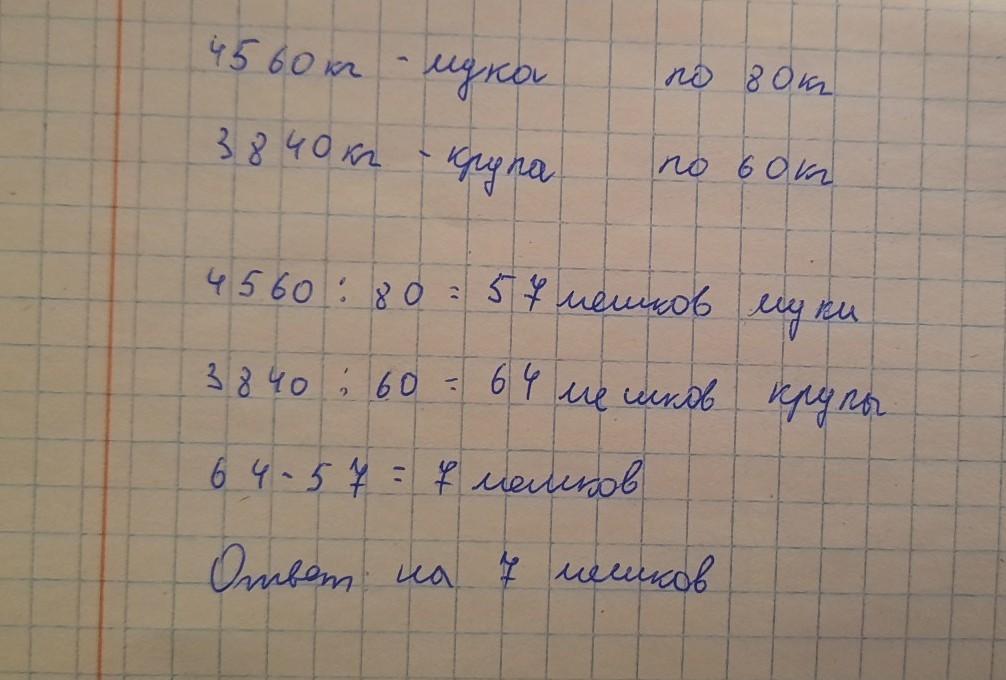 4560 кг - мука по 80 кг
3840 кг - крупа по 60 кг
4560 : 80 = 57 мешков муки
3840 : 60 = 64 мешков крупы
64 - 57 = 7 мешков
Ответ на 7 мешков